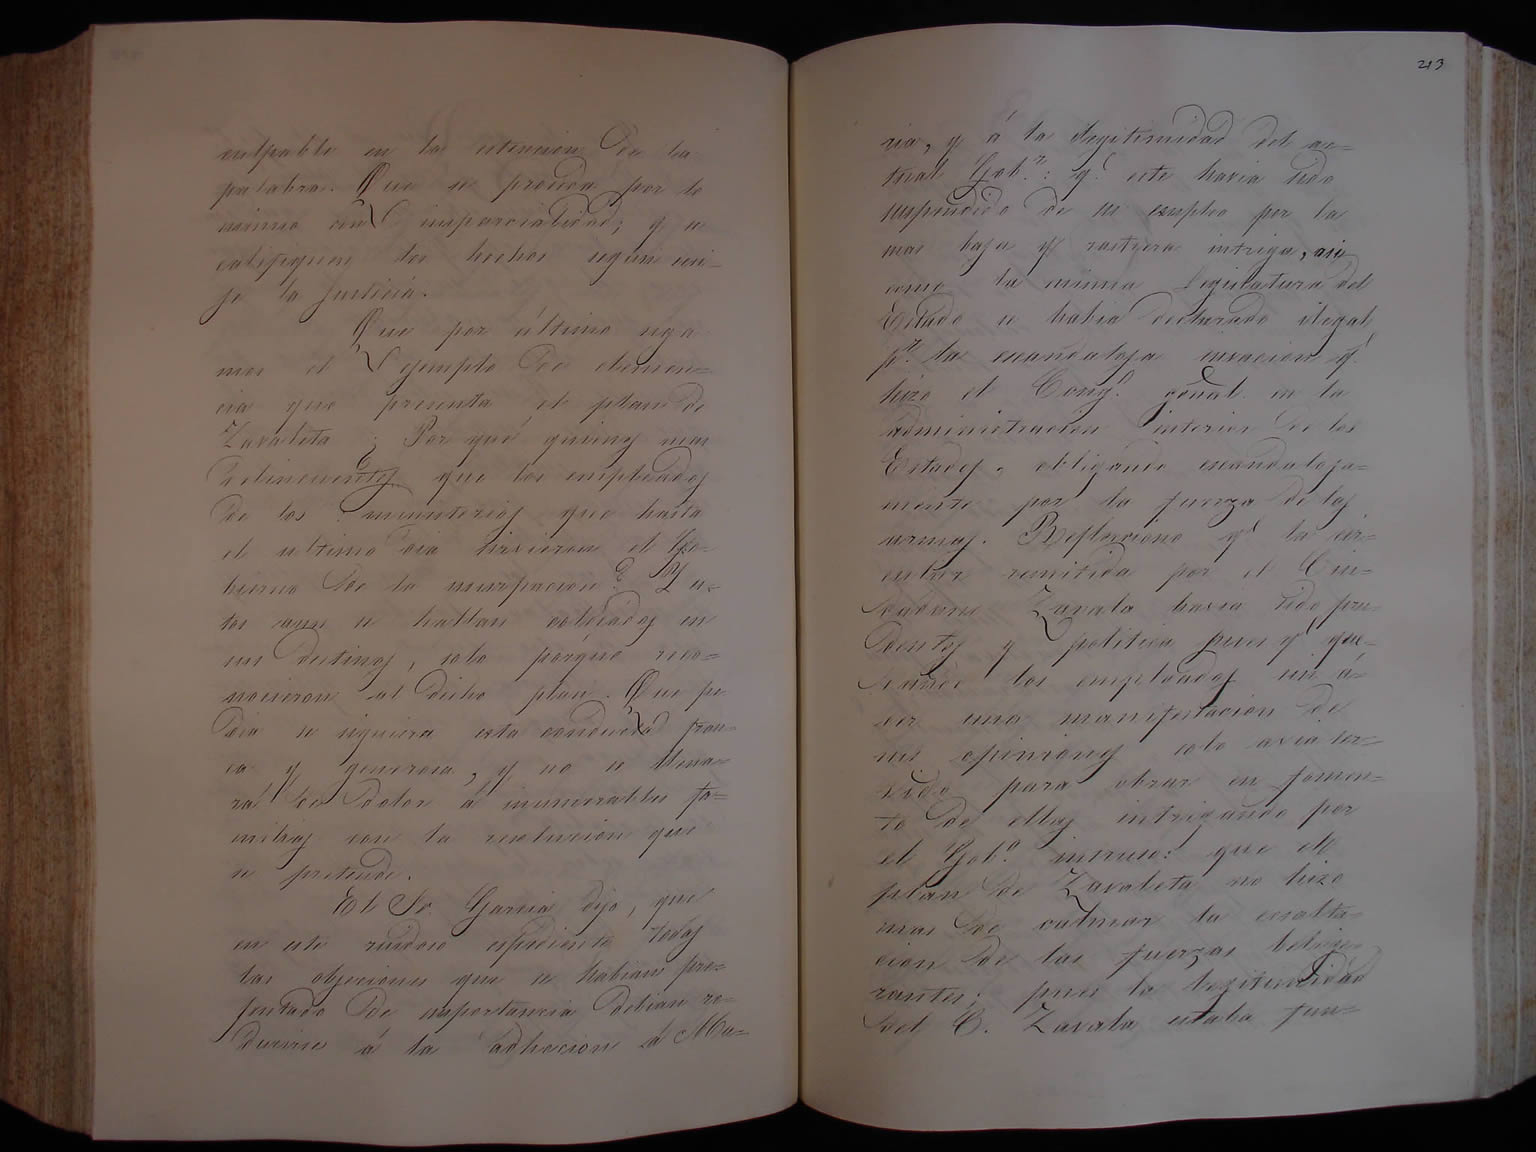 culpable en la estencion de la
palabra. Que se proceda por lo
mismo con imparcialidad, y se
califiquen los hechos segun exi=
je la justicia.
Que por último siga
mos el egemplo de clemen=
cia que presenta el plan de
Zavaleta ¿Por qué quienes mas
delincuentes que los empleados
de los ministerios que hasta
el ultimo dia sirvieron el Go=
bierno de la usurpacion? Y es=
tos aun se hallan colocados en
sus destinos, solo porque reco=
nocieron al dicho plan. Que pe
dia se siguiera esta conducta fran
ca y generosa, y no se llena=
rá de dolor á inumerables fa=
milias con la resolucion que
se pretende.
El Sr. Garcia dijo, que
en este ruidoso espediente todas
las objeciones que se habian pre=
sentado de importancia debian re=
ducirse á la adhecion á Ma=
213
ria, y á la ilegitimidad del ac=
tual Gob.r: q.e este havia sido
suspendido de su empleo por la
mas baja y rastrera intriga, asi
como la misma Legislatura del
Estado se habia declarado ilegal,
p.r la escandalosa invacion q.e
hizo el Cong.o gēnal. en la
administracion interior de los
Estados, obligando escandalosa=
mente por la fuerza de las
armas. Reflecsionó q.e la cir=
cular remitida por el Ciu=
dadano Zavala havia sido pru=
dente y politica pues q.e que=
dando los empleados sin á=
cer una manifestacion de
sus opiniones solo avia ser=
vido para obrar en fomen=
to de ellas intrigando por
el Gob.o intruso: que el
plan de Zavaleta no hizo
mas de calmar la ecsalta=
cion de las fuerzas belige
rantes; pues la legitimidad
del C. Zavala estaba fun=